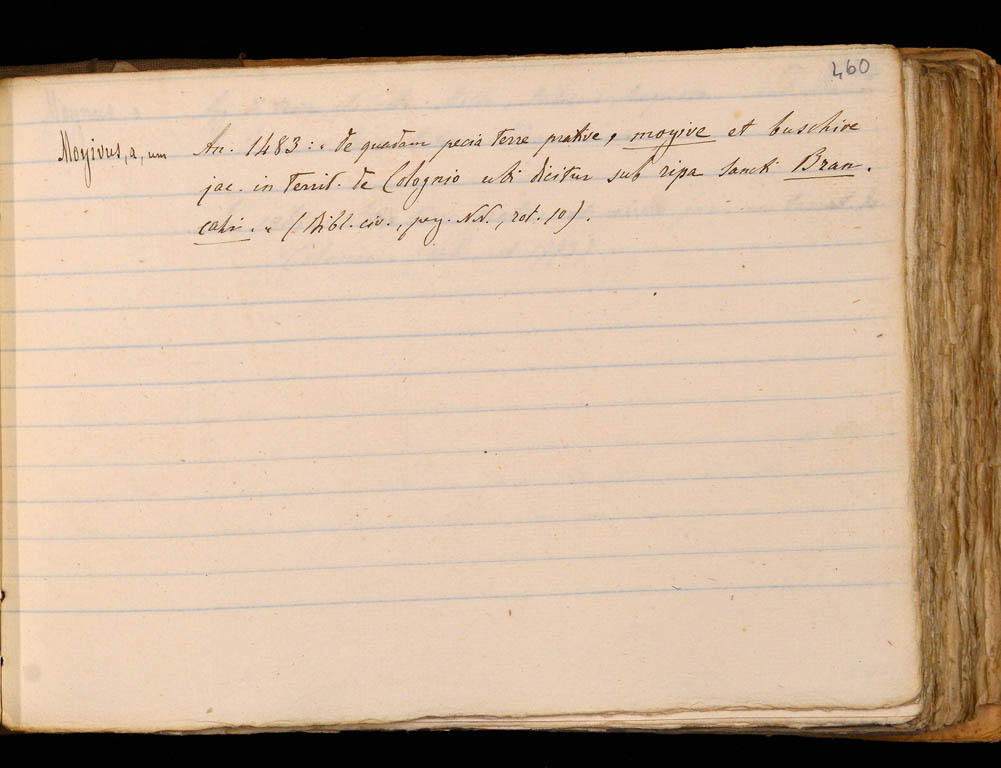 460
Moyivus, a, um An. 1483: « de quadam pecia terre prative, moyive et buschive
jac. in territ. de Colognio ubi dicitur sub ripa sancti Bran-
catii. » (Bibl. civ., perg. NN., rot. 10).